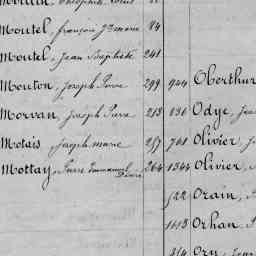 Moutel, françois Jn marie 84
Moutel, Jean Baptiste 241
Mouton, Joseph Pierre 299 944 Oberthur
Morvan, Joseph Pierre 213 836 Odye, Jea
Motais, Joseph marie 257 761 Olivier, J
Mottay, Pierre Emmanuel Désiré 264 1344 Olivier,
522 Orain,
1613 Orhan,
414 Ory,